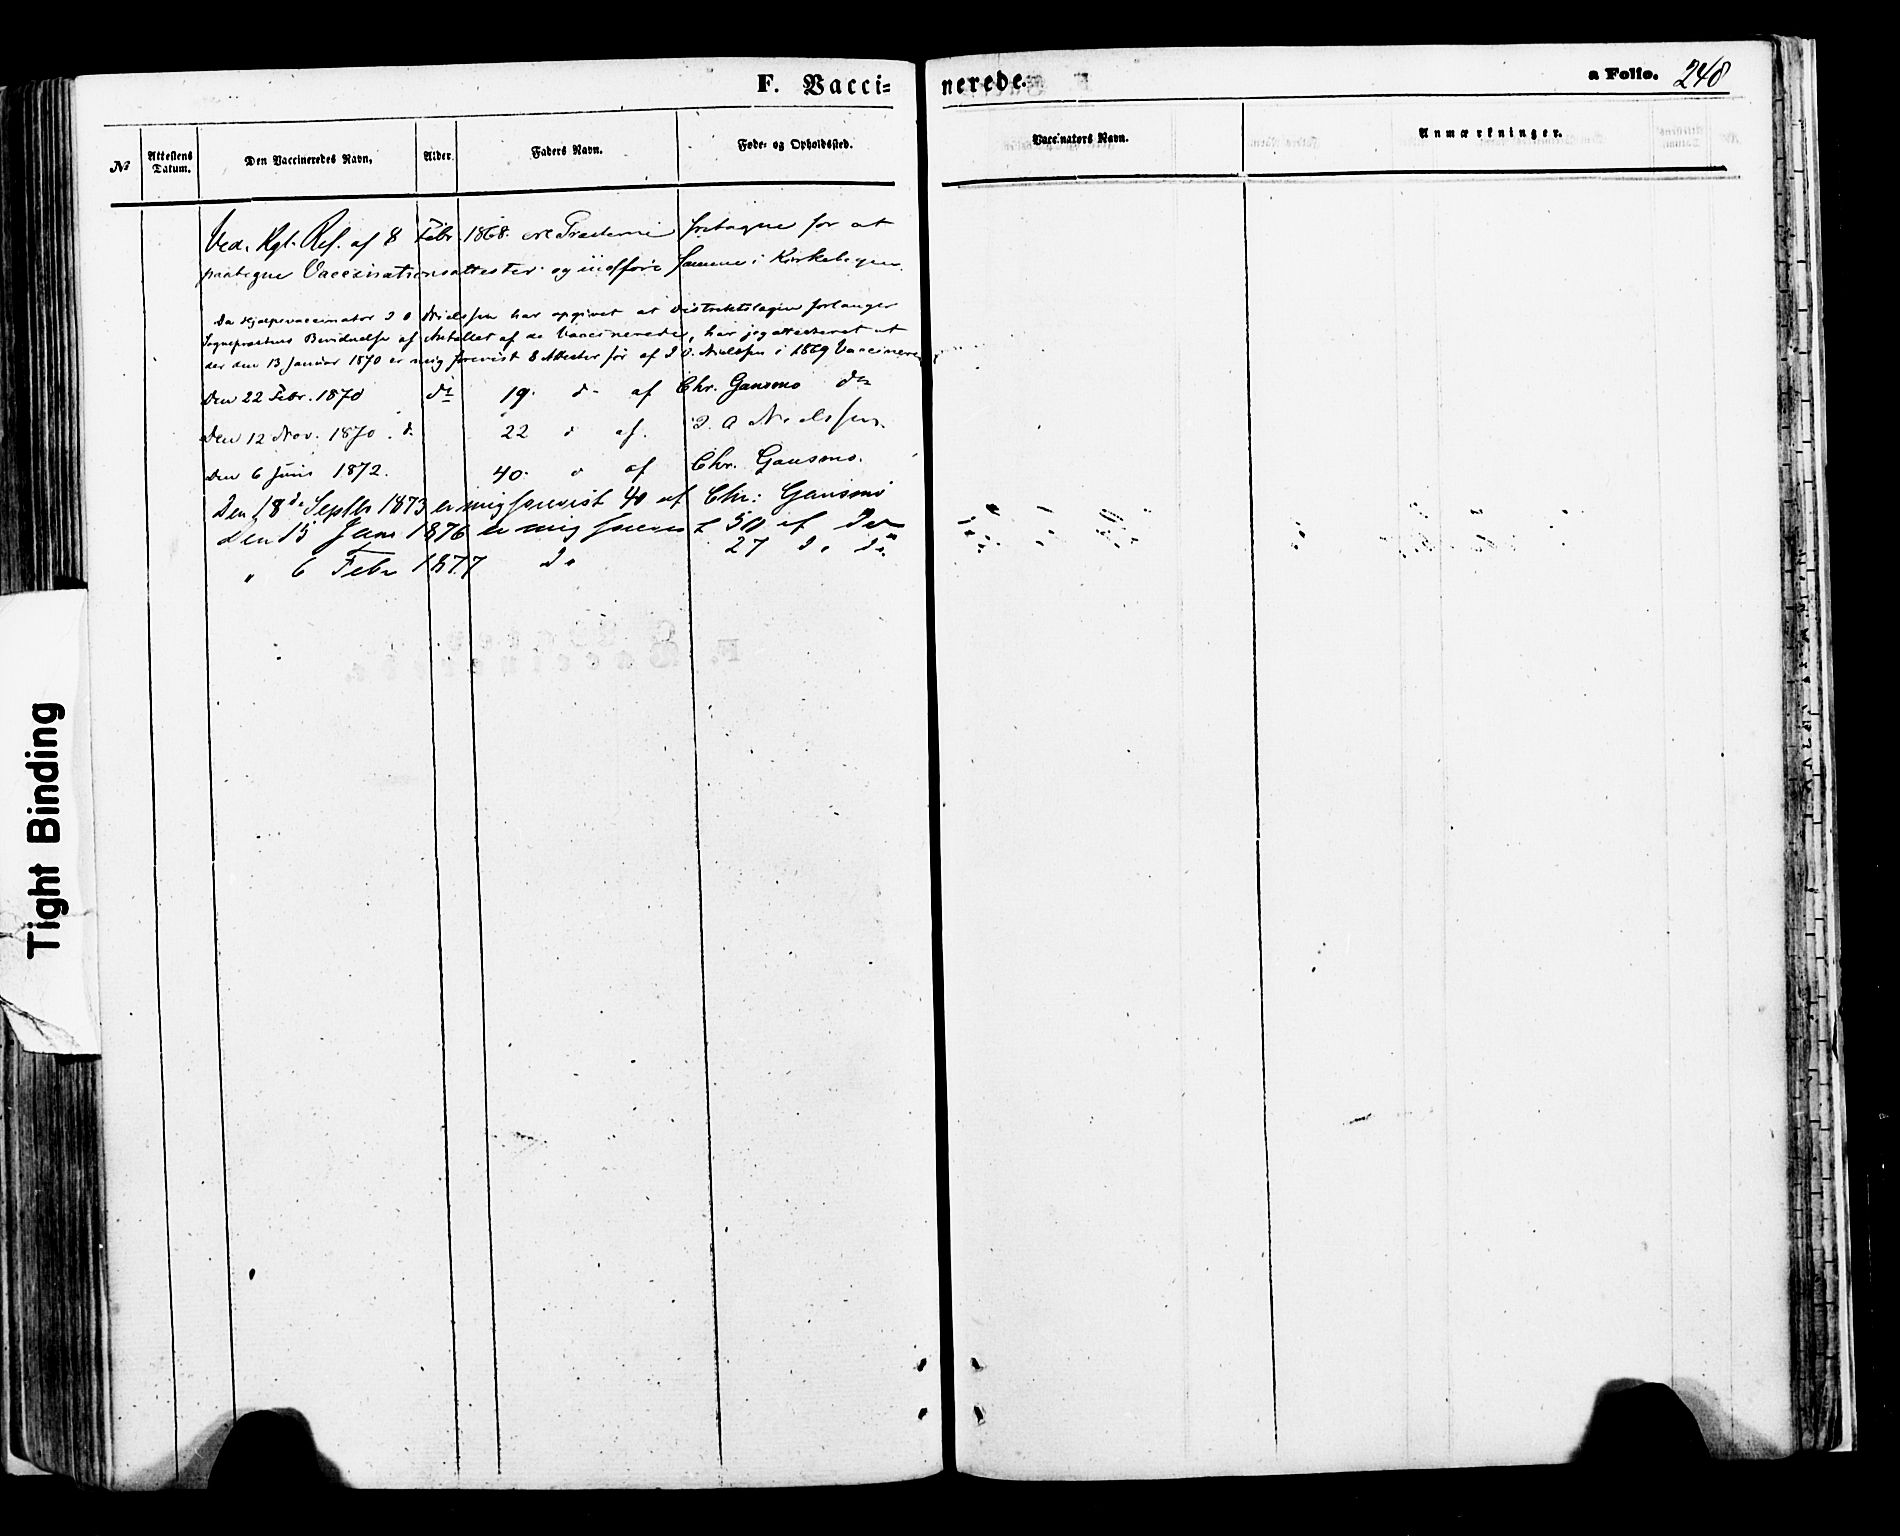 F. Vacci=
nerede.
a Folio. 248
No
Attestens Datum.
Den Vaccineredes Navn,
Alder.
Faders Navn.
Føde- og Opholdssted.
Vaccinators Navn.
Anmærkninger.
Ved. Kgl. Res. af 8 Febr. 1868. ere Præsterne fritagne for at
paategne Vaccinationsattester og indføre Samme i Kirkebogen.
Da Hjælpevaccinatør I O Nielssen har opgivet at Distriktslægen forlanger
Sognepræstens Bevidnelse af Antallet af de Vaccinerede, har jeg attesteret at
der den 13 Januar 1870 er mig forevist 8 Attester for af I O. Nielssen i 1869 Vaccinere
Den 22 Febr. 1870 do 19. d- af Chr. Gansmo do
Den 12 Nov. 1870. d. 22 d af. I. O Nielssen.
Den 6 Juni 1872. 40. d af Chr. Gansmo.
Den 18de Septbr 1873 er mig forevist 40 af Chr: Gansmo
Den 15 Janr 1876 er mig forevist 50 af
" 6 Febr 1877 do 27 do do
Tight Binding
F. Vaccinerede.